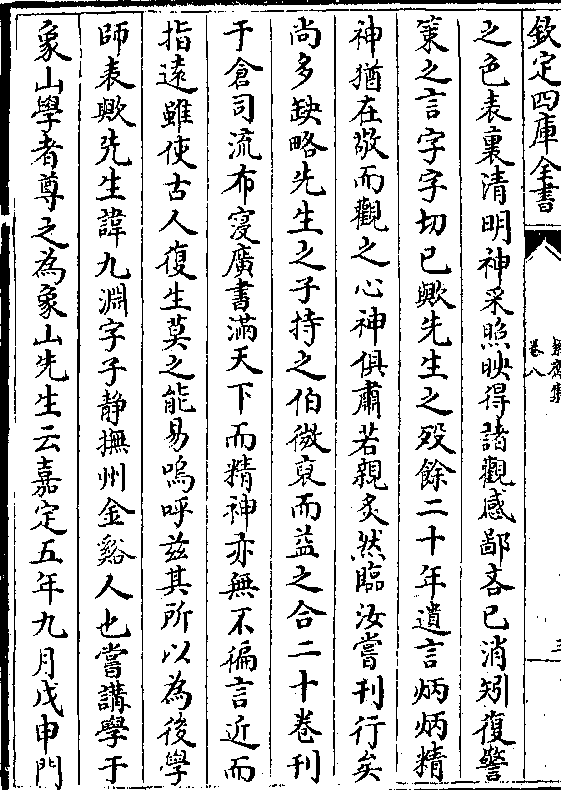 欽定四庫全書
絜齋集
卷八
三
之色表裏清明神采照映得諸觀感鄙吝已消矧復警
策之言字字切已歟先生之歿餘二十年遺言炳炳精
神猶在敬而觀之心神俱肅若親炙然臨汝嘗刊行矣
尚多缺略先生之子持之伯微裒而益之合二十卷刊
于倉司流布寖廣書滿天下而精神亦無不徧言近而
指遠雖使古人復生莫之能易嗚呼兹其所以為後學
師表歟先生諱九淵字子靜撫州金谿人也嘗講學于
象山學者尊之為象山先生云嘉定五年九月戊申門